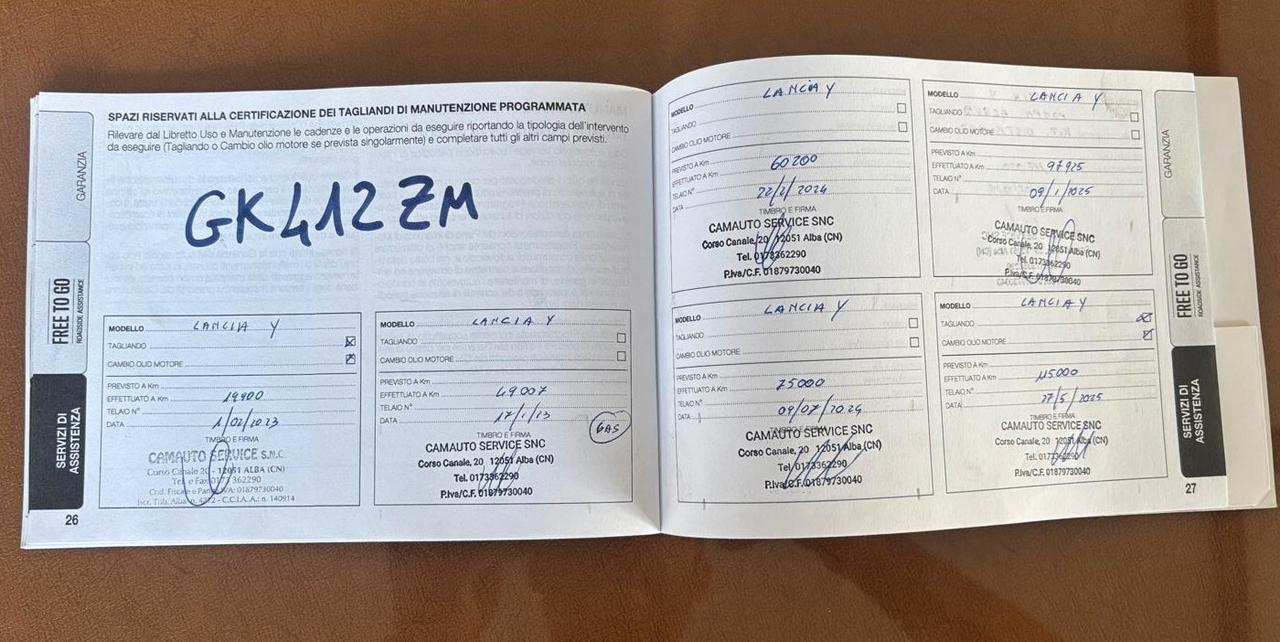 SPAZI RISERVATI ALLA CERTIFICAZIONE DEI TAGLIANDI DI MANUTENZIONE PROGRAMMATA
Rilevare dal Libretto Uso e Manutenzione le cadenze e le operazioni da eseguire riportando la tipologia dell'intervento
da eseguire (Tagliando o Cambio olio motore se prevista singolarmente) e completare tutti gli altri campi previsti.
GK412ZM
GARANZIA
FREE TO GO
ROADSIDE ASSISTANCE
SERVIZI DI
ASSISTENZA
26
MODELLO LANCIA Y
TAGLIANDO
CAMBIO OLIO MOTORE
PREVISTO A Km
EFFETTUATO A Km 19900
TELAIO N°
DATA 1/02/2023
TIMBRO E FIRMA
CAMAUTO SERVICE S.N.C.
Corso Canale 20 - 12051 ALBA (CN)
Tel. e Fax 0173 362290
Cod. Fiscale e Part. IVA: 01879730040
C.C.I.A.A.: n. 140914
MODELLO LANCIA Y
TAGLIANDO
CAMBIO OLIO MOTORE
PREVISTO A Km
EFFETTUATO A Km 49007
TELAIO N°
DATA
GAS
TIMBRO E FIRMA
CAMAUTO SERVICE SNC
Corso Canale, 20 12051 Alba (CN)
Tel. 0173362290
P.Iva/C.F. 01879730040
MODELLO LANCIA Y
TAGLIANDO
CAMBIO OLIO MOTORE
PREVISTO A Km
EFFETTUATO A Km 60200
TELAIO N°
DATA 22/2/2024
TIMBRO E FIRMA
CAMAUTO SERVICE SNC
Corso Canale, 20 12051 Alba (CN)
Tel. 0173362290
P.Iva/C.F. 01879730040
MODELLO LANCIA Y
TAGLIANDO
CAMBIO OLIO MOTORE
PREVISTO A Km
EFFETTUATO A Km 97925
TELAIO N°
DATA 09/1/2025
TIMBRO E FIRMA
CAMAUTO SERVICE SNC
Corso Canale, 20 12051 Alba (CN)
Tel. 0173362290
P.Iva/C.F. 01879730040
MODELLO LANCIA Y
TAGLIANDO
CAMBIO OLIO MOTORE
PREVISTO A Km
EFFETTUATO A Km 75000
TELAIO N°
DATA 09/07/2024
TIMBRO E FIRMA
CAMAUTO SERVICE SNC
Corso Canale, 20 12051 Alba (CN)
Tel. 0173362290
P.Iva/C.F. 01879730040
MODELLO LANCIA Y
TAGLIANDO
CAMBIO OLIO MOTORE
PREVISTO A Km
EFFETTUATO A Km 115000
TELAIO N°
DATA 27/5/2025
TIMBRO E FIRMA
CAMAUTO SERVICE SNC
Corso Canale, 20 12051 Alba (CN)
Tel. 0173362290
P.Iva/C.F. 01879730040
GARANZIA
FREE TO GO
ROADSIDE ASSISTANCE
SERVIZI DI
ASSISTENZA
27